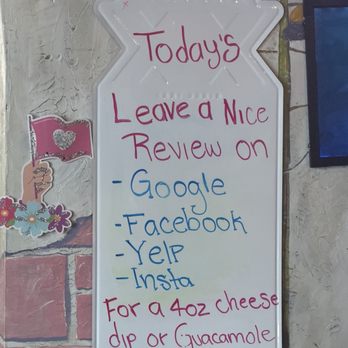 Today's
Leave a Nice
Review on
- Google
- Facebook
- Yelp
- Insta
For a 4oz cheese
dip or Guacamole